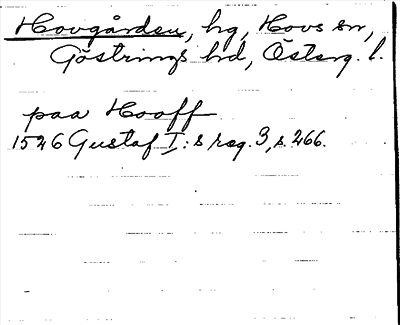 Hovgården, hg, Hovs sn,
Göstrings hd, Österg. l.
paa Hooff
1526 Gustaf I:s reg. 3, s. 266.